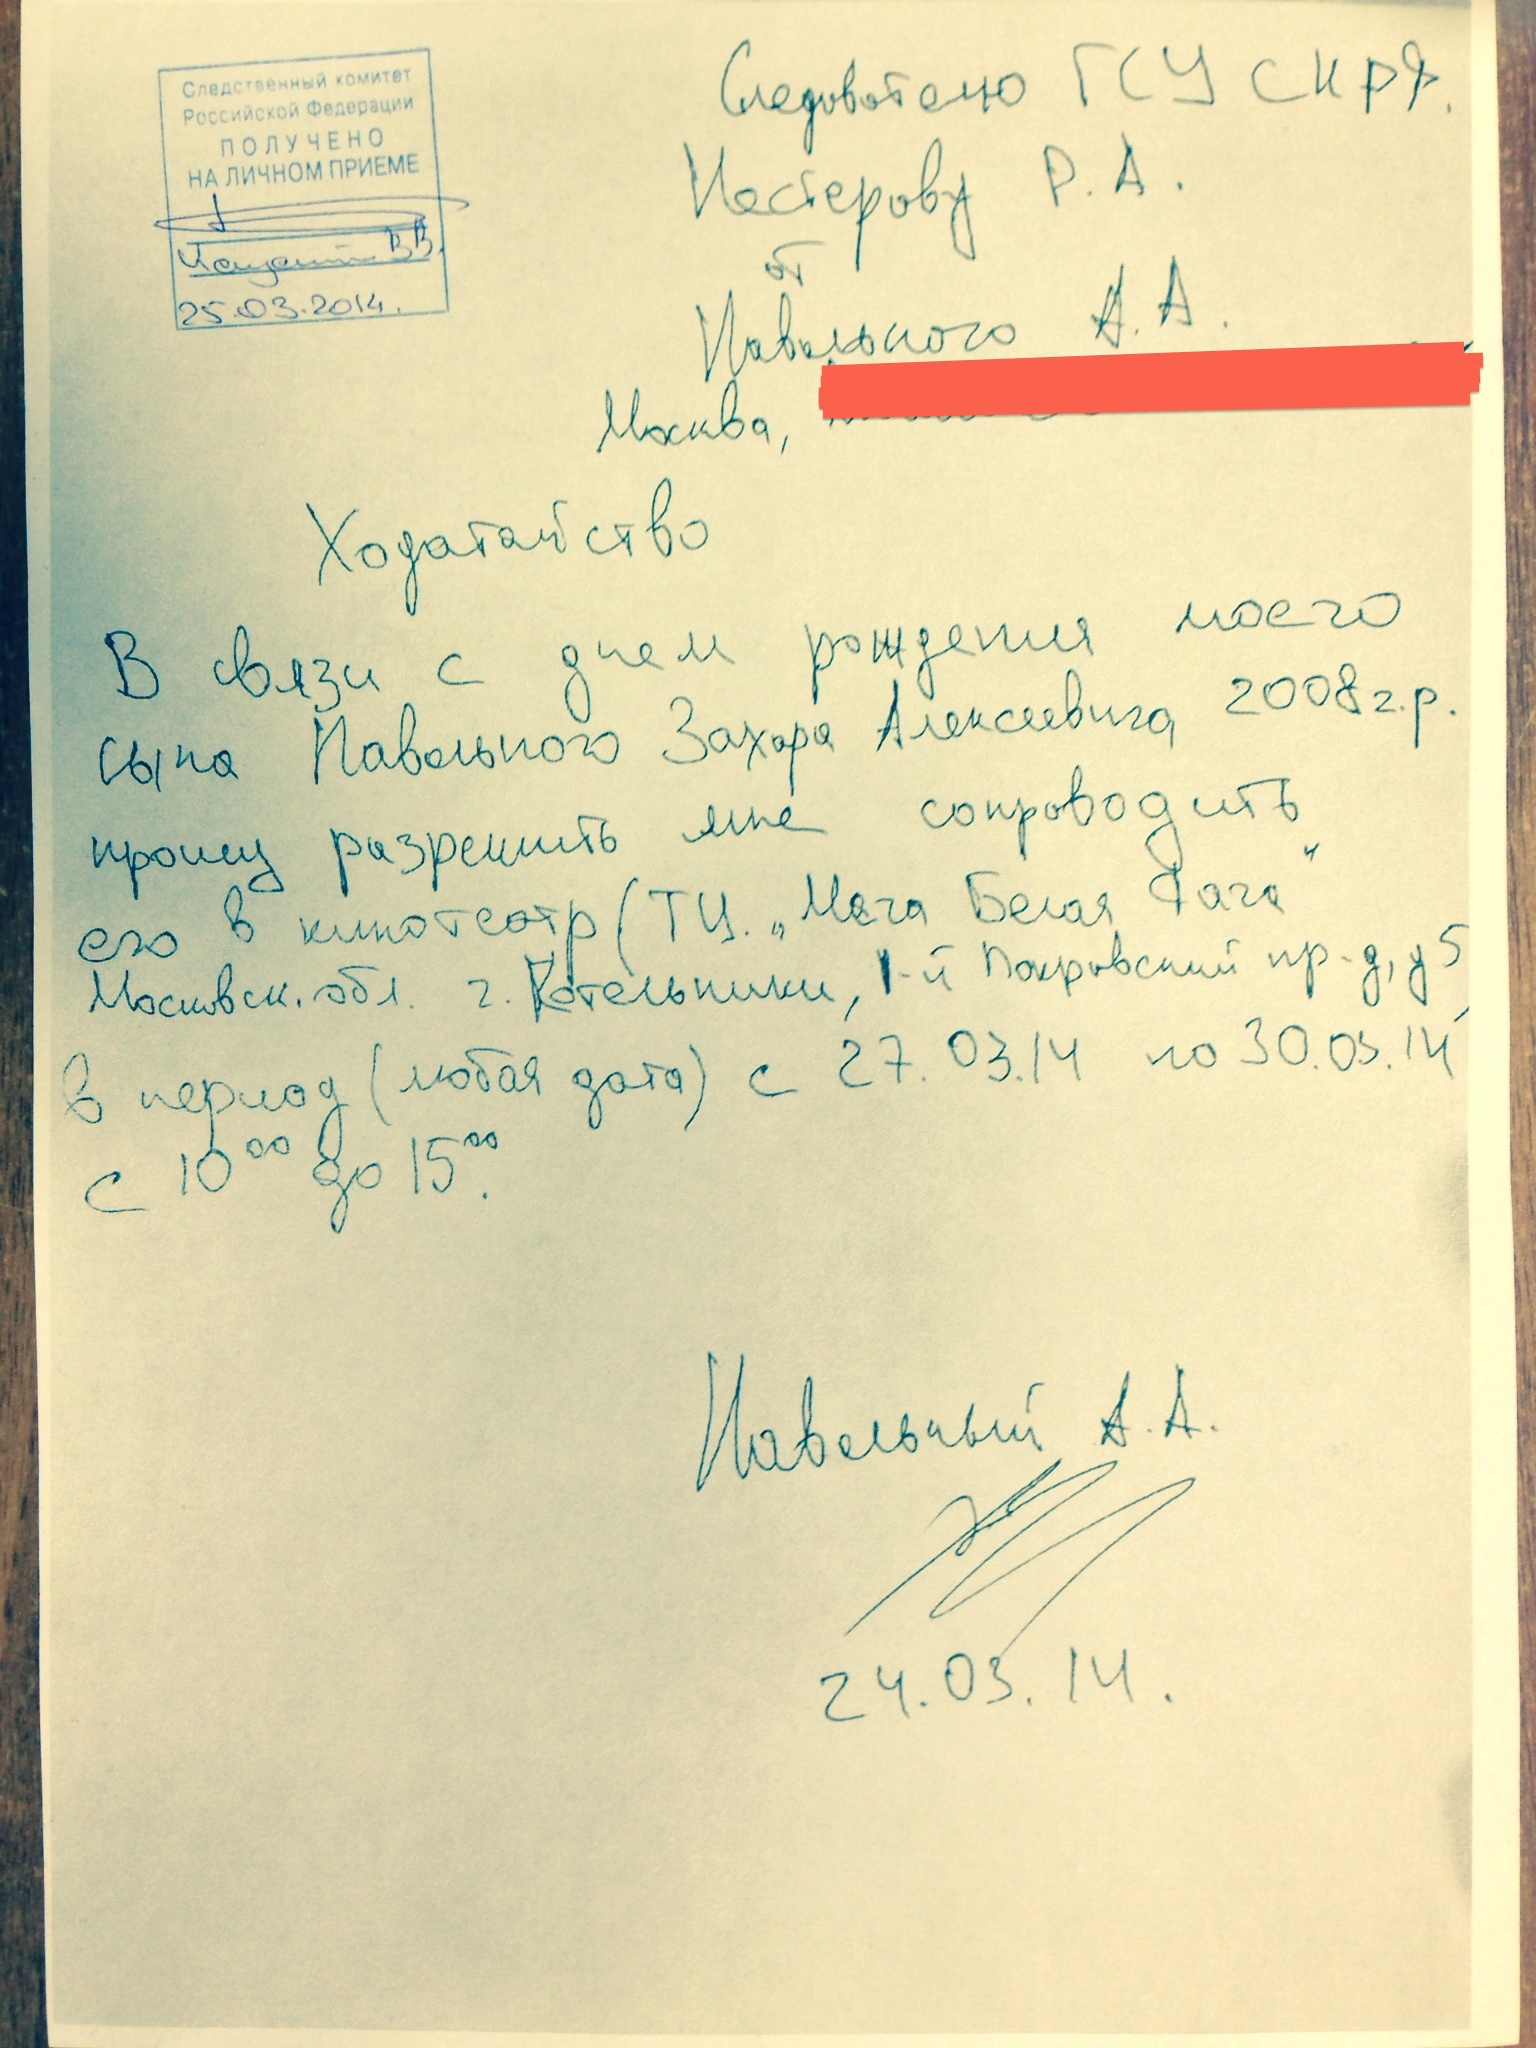 Следственный комитет
Российской Федерации
ПОЛУЧЕНО
НА ЛИЧНОМ ПРИЕМЕ
В.В.
25.03.2014.
Следователю ГСУ СК РФ.
Нестерову Р.А.
от
Навального А.А.
Москва,
Ходатайство
В связи с днем рождения моего
сына Навального Захара Алексеевича 2008 г.р.
прошу разрешить мне сопроводить
его в кинотеатр (ТЦ. „Мега Белая Дача“
Московск. обл. г. Котельники, 1-й Покровский пр-д, д 5,
в период (любая дата) с 27.03.14 по 30.03.14
с 10⁰⁰ до 15⁰⁰.
Навальный А.А.
24.03.14.